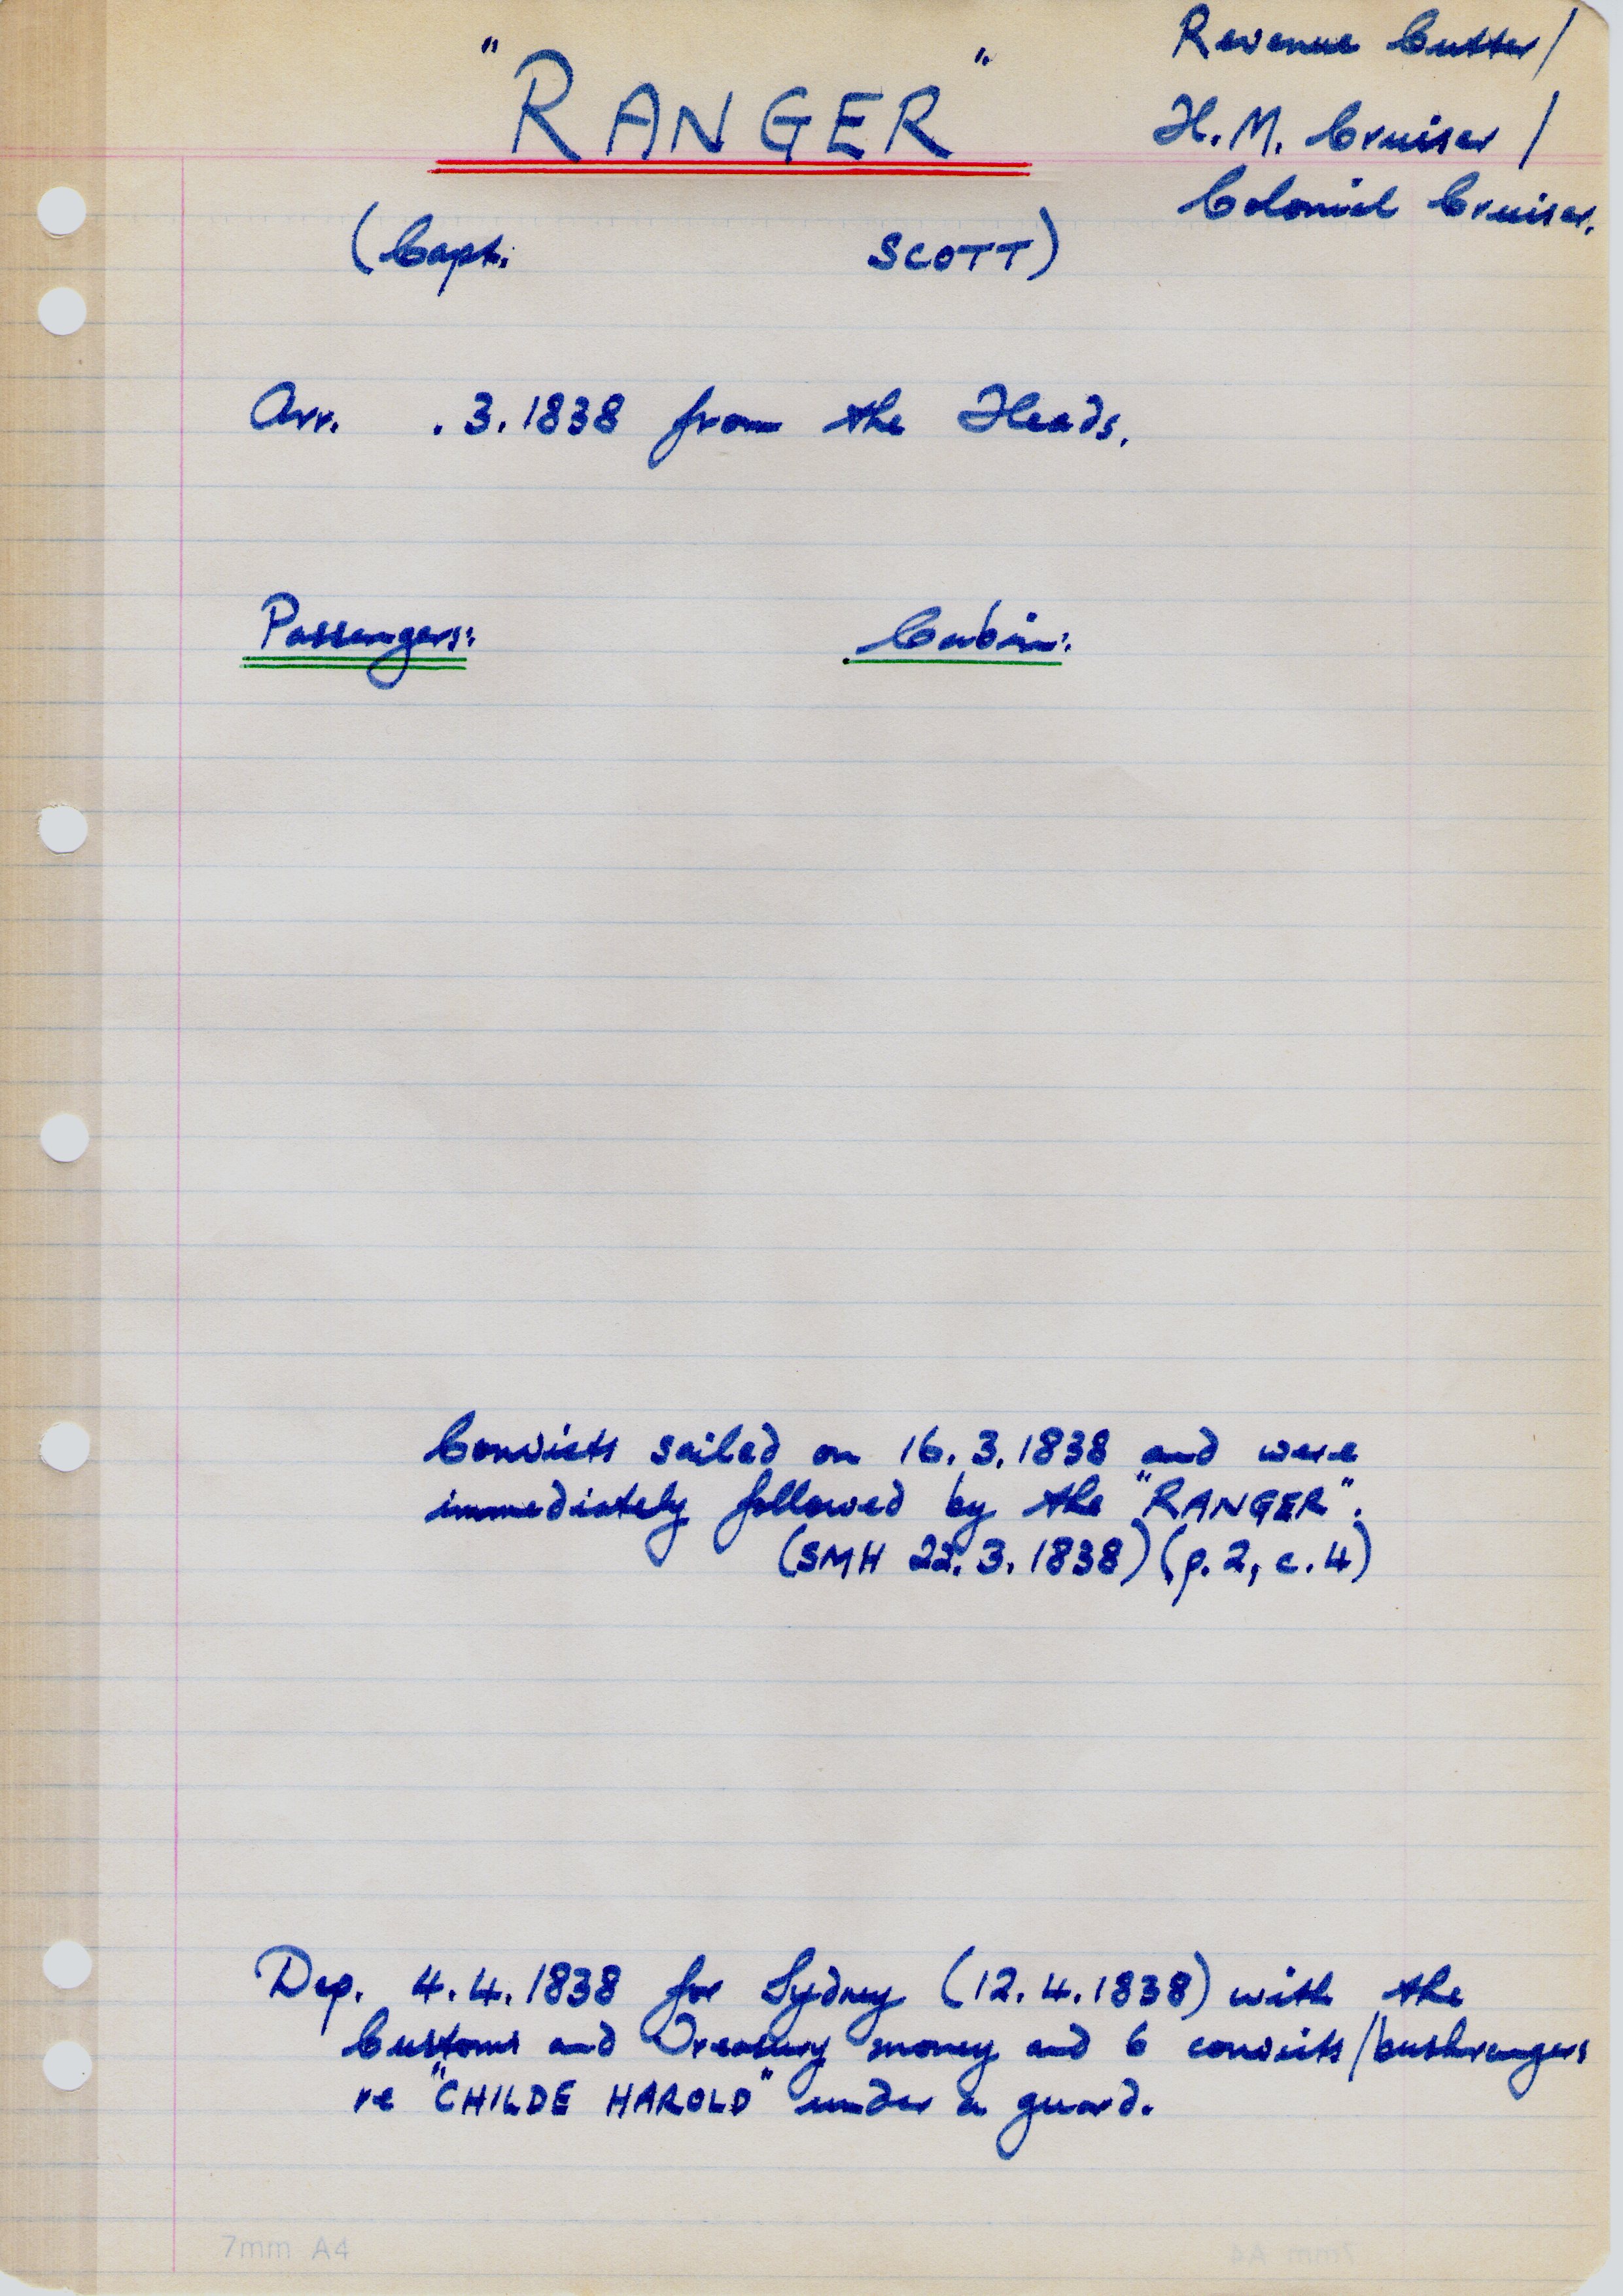 "RANGER"
Revenue Cutter/
H.M. Cruiser/
Colonial Cruiser.
(Capt. SCOTT)
Arr. .3.1838 from the Heads.
Passengers: Cabin:
Convicts sailed on 16.3.1838 and were
immediately followed by the "RANGER".
(SMH 22.3.1838) (p.2, c.4)
Dep. 4.4.1838 for Sydney (12.4.1838) with the
Customs and Treasury money and 6 convicts/bushrangers
re "CHILDE HAROLD" under a guard.
7mm A4
7mm A4